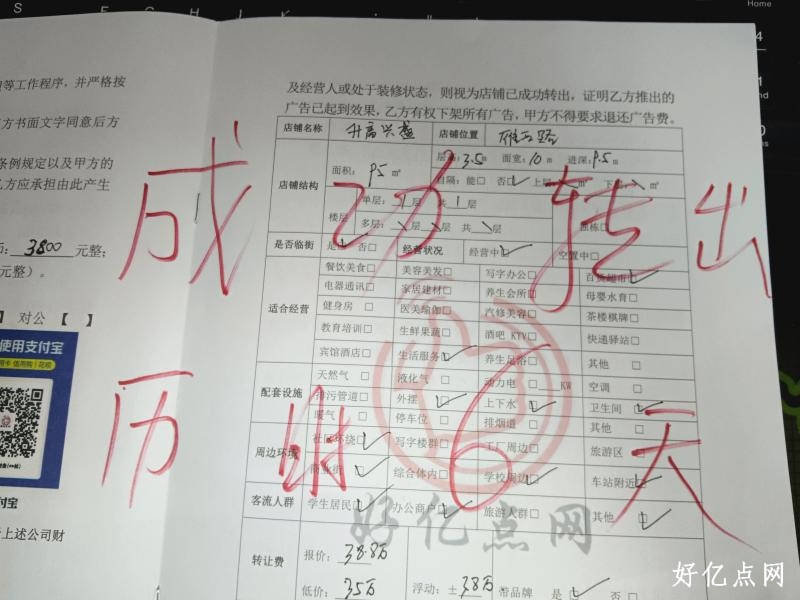 等工作程序，并严格按
方书面文字同意后方
条例规定以及甲方的
乙方应承担由此产生
3800 元整；
元整）。
对公 【 】
使用支付宝
信用购 | 花呗
付宝
上述公司财
及经营人或处于装修状态，则视为店铺已成功转出，证明乙方推出的
广告已起到效果，乙方有权下架所有广告，甲方不得要求退还广告费。
店铺名称 升高兴超 店铺位置
店铺结构 面积： 95 m² 层高：3.5m 面宽：10m 进深：9.5m
自隔：能□ 否□✓ 上层 m² 下 m²
楼层 单层：1层 共1层
多层：＼层＼层 共＼层 独栋□
是否临街 是□ 否□ 经营状况 经营中□✓ 空置中□
适合经营 餐饮美食□ 美容美发□ 写字办公□ 百货超市□✓
电器通讯□ 家居建材□ 养生会所□ 母婴水育□
健身房 □ 医美瑜伽□ 汽修美容□ 茶楼棋牌□
教育培训□ 生鲜果蔬□ 酒吧 KTV□ 快递驿站□
宾馆酒店□ 生活服务□✓ 养生足浴□ 其他 □
配套设施 天然气 □ 液化气 □ 动力电 □ KW 空调 □
排污管道□ 外摆 □✓ 上下水 □✓ 卫生间 □✓
暖气 □ 停车位 □ 排烟道 □ 其他 □
周边环境 社区环绕□✓ 写字楼群□ 工厂周边□ 旅游区
商业街 □✓ 综合体内□ 学校周边□✓ 车站附近□✓
客流人群 学生居民□✓ 办公商户□✓ 旅游人群□ 其他 □✓
转让费 报价：38.8万
低价：35万 浮动：±3.8万 带品牌 是□✓ 否□
成功转出
历时6天
好亿点网
好亿点网